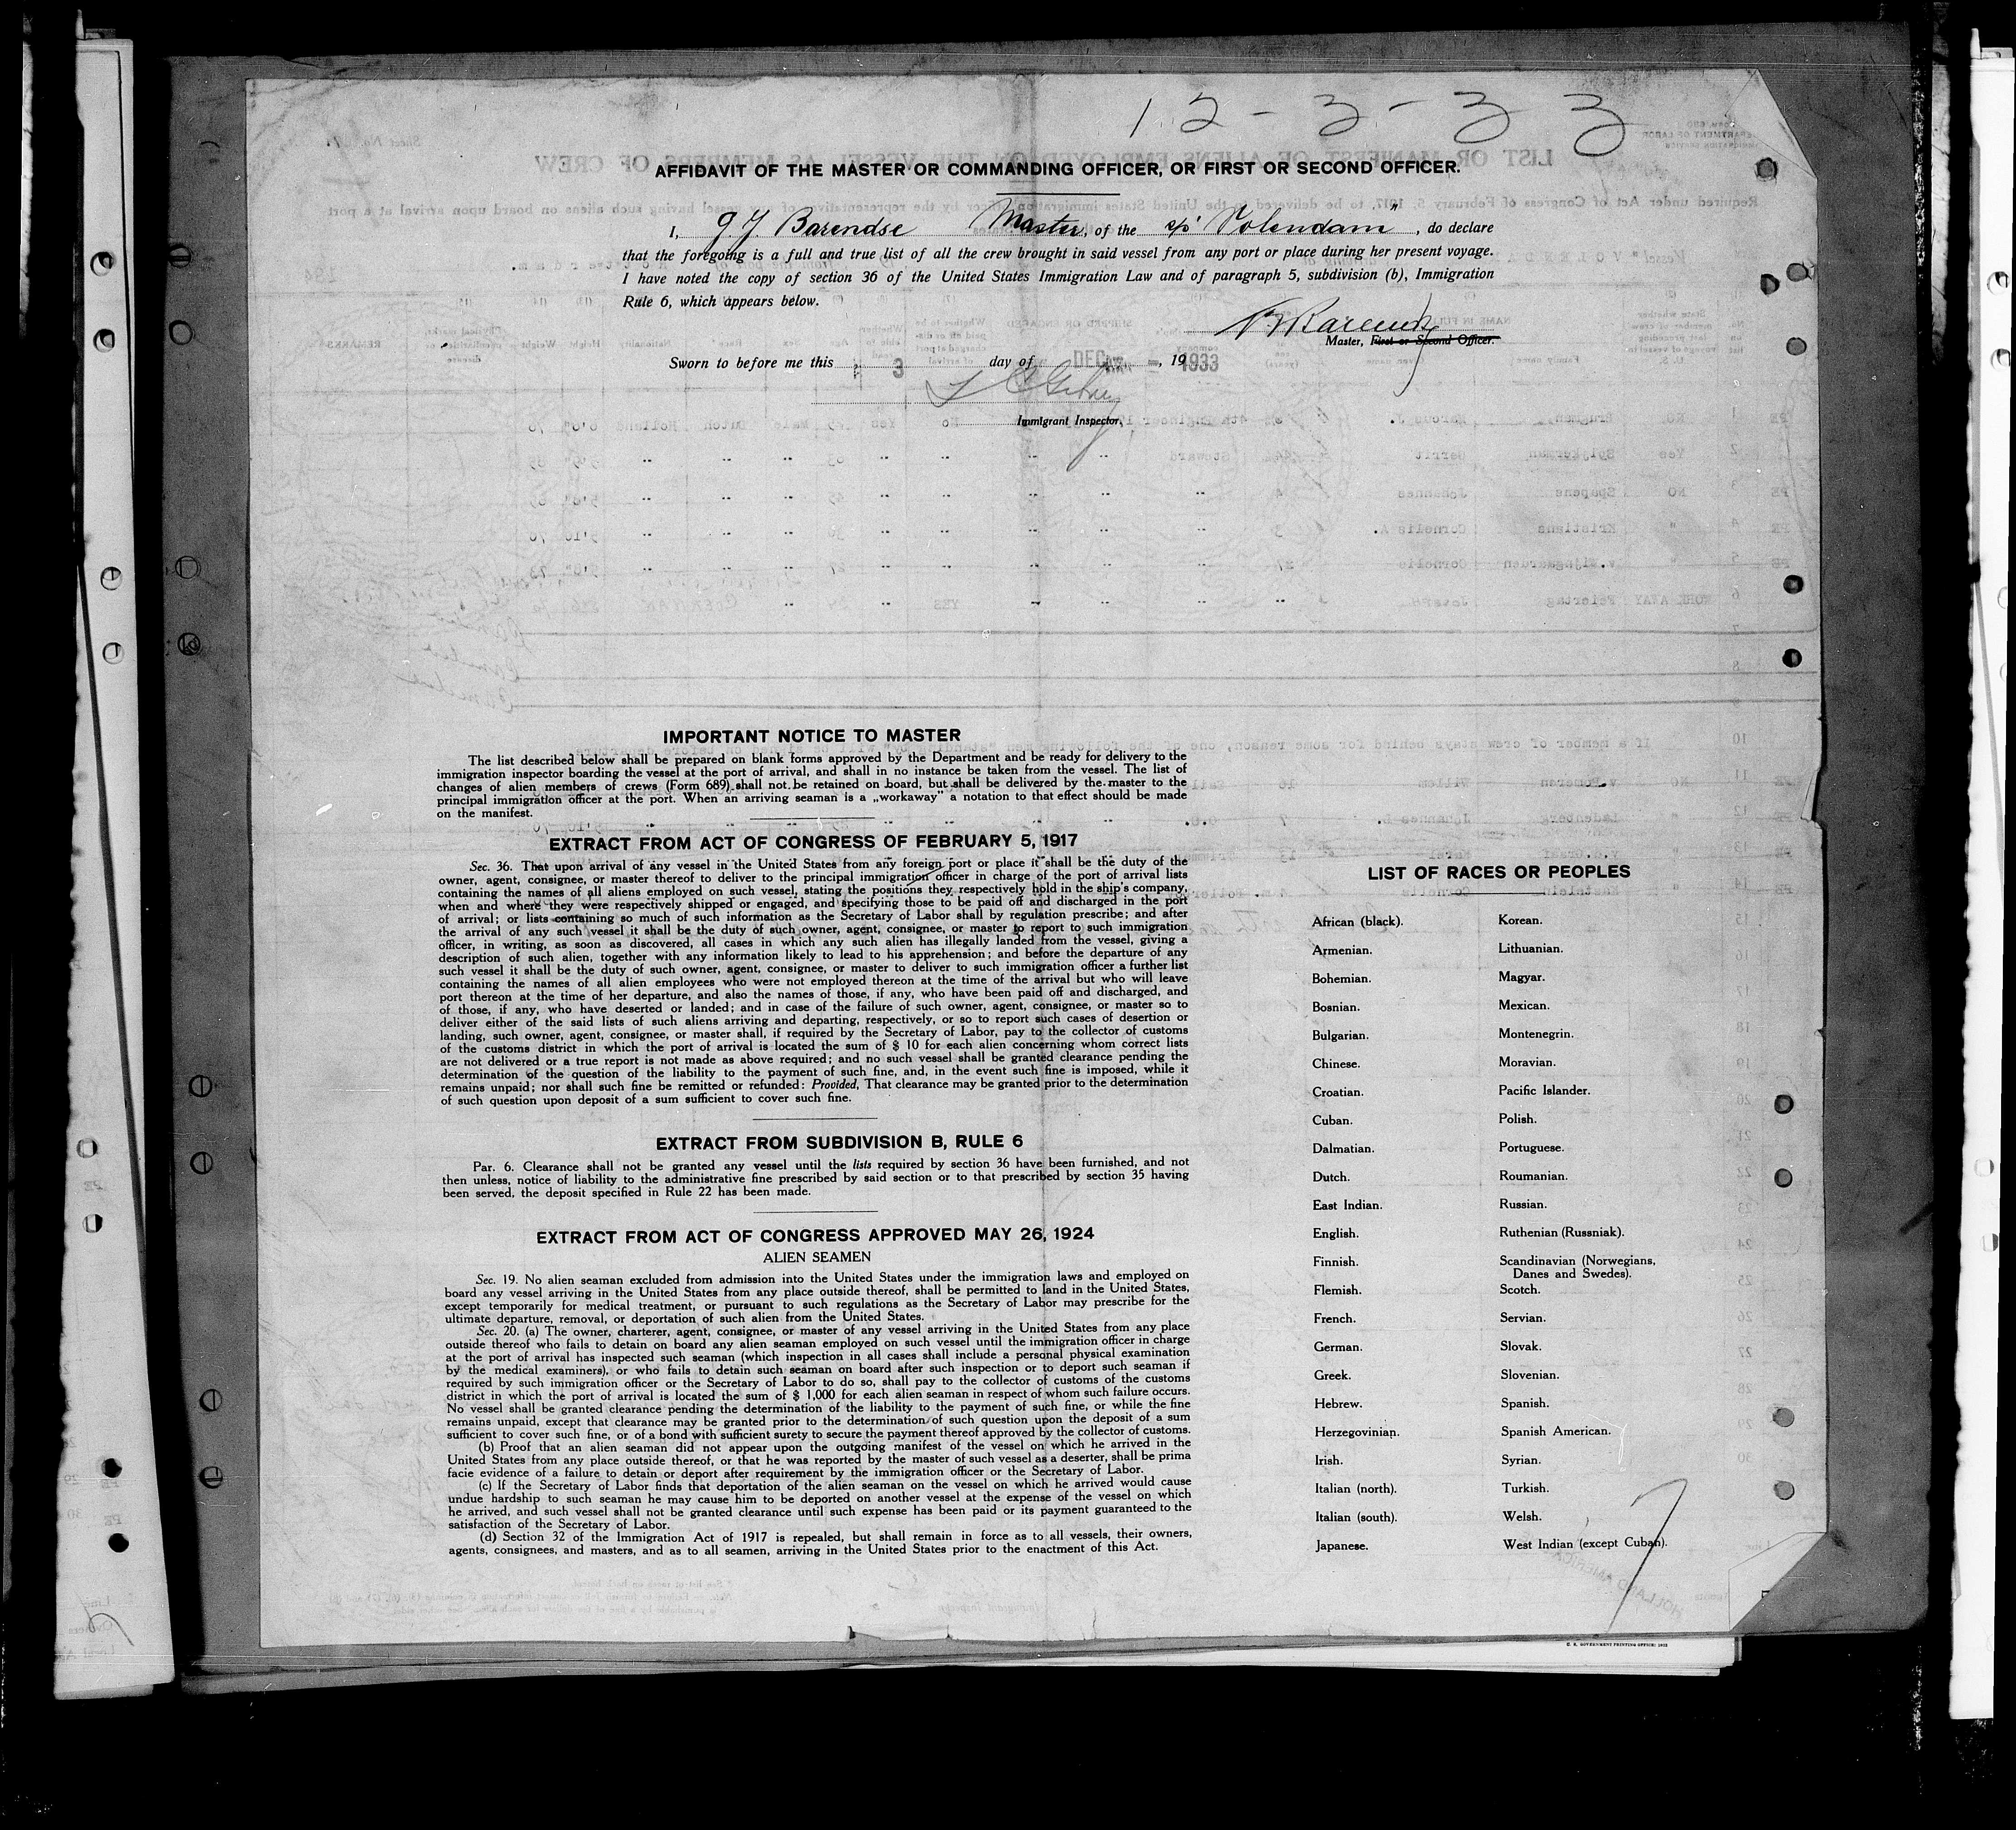 12-3-33
AFFIDAVIT OF THE MASTER OR COMMANDING OFFICER, OR FIRST OR SECOND OFFICER.
I, G. J. Barendse Master, of the s/s "Volendam", do declare
that the foregoing is a full and true list of all the crew brought in said vessel from any port or place during her present voyage.
I have noted the copy of section 36 of the United States Immigration Law and of paragraph 5, subdivision (b), Immigration
Rule 6, which appears below.
Master, First or Second Officer.
Sworn to before me this 3 day of DEC, 19 1933
Immigrant Inspector,
IMPORTANT NOTICE TO MASTER
The list described below shall be prepared on blank forms approved by the Department and be ready for delivery to the
immigration inspector boarding the vessel at the port of arrival, and shall in no instance be taken from the vessel. The list of
changes of alien members of crews (Form 689) shall not be retained on board, but shall be delivered by the master to the
principal immigration officer at the port. When an arriving seaman is a „workaway" a notation to that effect should be made
on the manifest.
EXTRACT FROM ACT OF CONGRESS OF FEBRUARY 5, 1917
Sec. 36. That upon arrival of any vessel in the United States from any foreign port or place it shall be the duty of the
owner, agent, consignee, or master thereof to deliver to the principal immigration officer in charge of the port of arrival lists
containing the names of all aliens employed on such vessel, stating the positions they respectively hold in the ship's company,
when and where they were respectively shipped or engaged, and specifying those to be paid off and discharged in the port
of arrival; or lists containing so much of such information as the Secretary of Labor shall by regulation prescribe; and after
the arrival of any such vessel it shall be the duty of such owner, agent, consignee, or master to report to such immigration
officer, in writing, as soon as discovered, all cases in which any such alien has illegally landed from the vessel, giving a
description of such alien, together with any information likely to lead to his apprehension; and before the departure of any
such vessel it shall be the duty of such owner, agent, consignee, or master to deliver to such immigration officer a further list
containing the names of all alien employees who were not employed thereon at the time of the arrival but who will leave
port thereon at the time of her departure, and also the names of those, if any, who have been paid off and discharged, and
of those, if any, who have deserted or landed; and in case of the failure of such owner, agent, consignee, or master so to
deliver either of the said lists of such aliens arriving and departing, respectively, or so to report such cases of desertion or
landing, such owner, agent, consignee, or master shall, if required by the Secretary of Labor, pay to the collector of customs
of the customs district in which the port of arrival is located the sum of $ 10 for each alien concerning whom correct lists
are not delivered or a true report is not made as above required; and no such vessel shall be granted clearance pending the
determination of the question of the liability to the payment of such fine, and, in the event such fine is imposed, while it
remains unpaid; nor shall such fine be remitted or refunded: Provided, That clearance may be granted prior to the determination
of such question upon deposit of a sum sufficient to cover such fine.
EXTRACT FROM SUBDIVISION B, RULE 6
Par. 6. Clearance shall not be granted any vessel until the lists required by section 36 have been furnished, and not
then unless, notice of liability to the administrative fine prescribed by said section or to that prescribed by section 35 having
been served, the deposit specified in Rule 22 has been made.
EXTRACT FROM ACT OF CONGRESS APPROVED MAY 26, 1924
ALIEN SEAMEN
Sec. 19. No alien seaman excluded from admission into the United States under the immigration laws and employed on
board any vessel arriving in the United States from any place outside thereof, shall be permitted to land in the United States,
except temporarily for medical treatment, or pursuant to such regulations as the Secretary of Labor may prescribe for the
ultimate departure, removal, or deportation of such alien from the United States.
Sec. 20. (a) The owner, charterer, agent, consignee, or master of any vessel arriving in the United States from any place
outside thereof who fails to detain on board any alien seaman employed on such vessel until the immigration officer in charge
at the port of arrival has inspected such seaman (which inspection in all cases shall include a personal physical examination
by the medical examiners), or who fails to detain such seaman on board after such inspection or to deport such seaman if
required by such immigration officer or the Secretary of Labor to do so, shall pay to the collector of customs of the customs
district in which the port of arrival is located the sum of $ 1,000 for each alien seaman in respect of whom such failure occurs.
No vessel shall be granted clearance pending the determination of the liability to the payment of such fine, or while the fine
remains unpaid, except that clearance may be granted prior to the determination of such question upon the deposit of a sum
sufficient to cover such fine, or of a bond with sufficient surety to secure the payment thereof approved by the collector of customs.
(b) Proof that an alien seaman did not appear upon the outgoing manifest of the vessel on which he arrived in the
United States from any place outside thereof, or that he was reported by the master of such vessel as a deserter, shall be prima
facie evidence of a failure to detain or deport after requirement by the immigration officer or the Secretary of Labor.
(c) If the Secretary of Labor finds that deportation of the alien seaman on the vessel on which he arrived would cause
undue hardship to such seaman he may cause him to be deported on another vessel at the expense of the vessel on which
he arrived, and such vessel shall not be granted clearance until such expense has been paid or its payment guaranteed to the
satisfaction of the Secretary of Labor.
(d) Section 32 of the Immigration Act of 1917 is repealed, but shall remain in force as to all vessels, their owners,
agents, consignees, and masters, and as to all seamen, arriving in the United States prior to the enactment of this Act.
LIST OF RACES OR PEOPLES
African (black).
Armenian.
Bohemian.
Bosnian.
Bulgarian.
Chinese.
Croatian.
Cuban.
Dalmatian.
Dutch.
East Indian.
English.
Finnish.
Flemish.
French.
German.
Greek.
Hebrew.
Herzegovinian.
Irish.
Italian (north).
Italian (south).
Japanese.
Korean.
Lithuanian.
Magyar.
Mexican.
Montenegrin.
Moravian.
Pacific Islander.
Polish.
Portuguese.
Roumanian.
Russian.
Ruthenian (Russniak).
Scandinavian (Norwegians,
Danes and Swedes).
Scotch.
Servian.
Slovak.
Slovenian.
Spanish.
Spanish American.
Syrian.
Turkish.
Welsh.
West Indian (except Cuban).